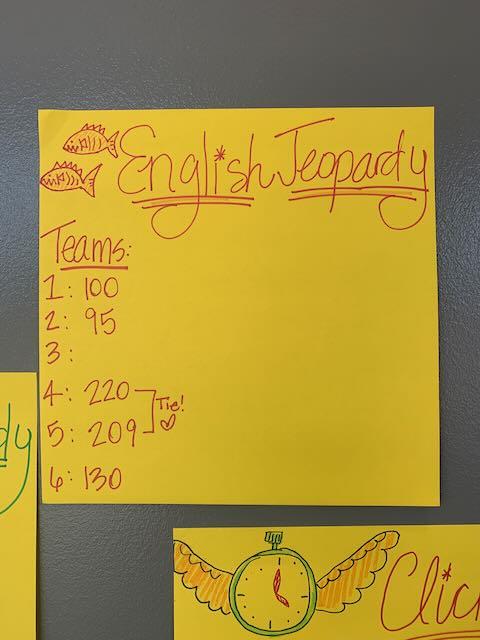 English Jeopardy
Teams:
1: 100
2: 95
3:
4: 220
Tie!
5: 209
6: 130
dy
Clic